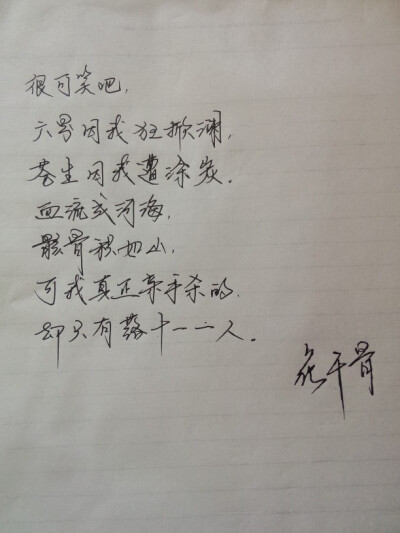 很可笑吧,
六界因我狂掀澜,
苍生因我遭涂炭.
血流成河海,
骸骨积如山,
可我真正亲手杀的,
却只有落十一一人.
花千骨